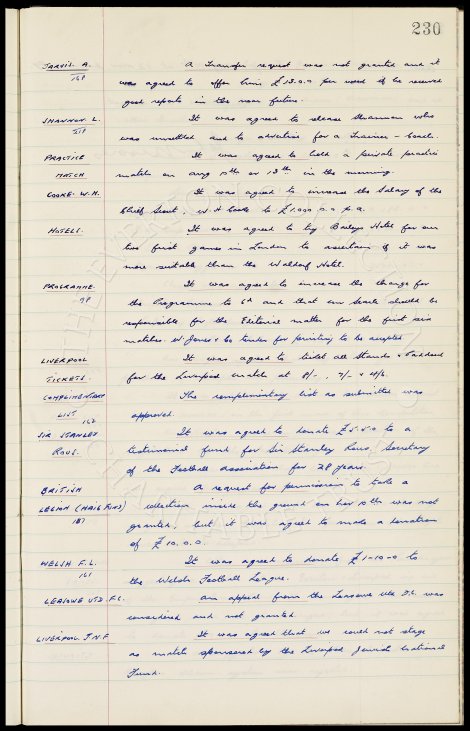 230
JARVIS. A. A Transfer request was not granted and it
168 was agreed to offer him £13.0.0 per week if he received
good reports in the near future.
SHANNON. L. It was agreed to release Shannon who
218 was unsettled and to advertise for a Trainer - Coach.
PRACTICE It was agreed to hold a private practice
MATCH match on Aug 10th or 13th in the morning.
COOKE. W. H. It was agreed to increase the Salary of the
Chief Scout, W. H Cooke to £1.000 0.0 p.a.
HOTELS. It was agreed to try Baileys Hotel for our
two first games in London to ascertain if it was
more suitable than the Waldorf Hotel.
PROGRAMME It was agreed to increase the charge for
the Programme to 6d and that should be
responsible for the Editorial matter for the first six
matches. W. Jones & Co tender for printing to be accepted
LIVERPOOL It was agreed to ticket all Stands & Paddock
TICKETS. for the Liverpool match at 8/-, 7/- &
COMPLIMENTARY The complimentary list as submitted was
LIST approved.
162
SIR STANLEY It was agreed to donate £5.5.0 to a
ROUS. testimonial fund for Sir Stanley Rous, Secretary
of the Football Association for 28 years.
BRITISH A request for permission to take a
LEGION (HAIG FUND) collection inside the ground on Nov 10th was not
187 granted, but it was agreed to make a donation
of £10.0.0.
WELSH F.L. It was agreed to donate £1-10-0 to
161 the Welsh Football League.
LEASOWE UTD. F.C. An appeal from the Leasowe Utd F.C. was
considered and not granted.
LIVERPOOL J N F It was agreed that we could not stage
a match sponsored by the Liverpool Jewish National
Fund.